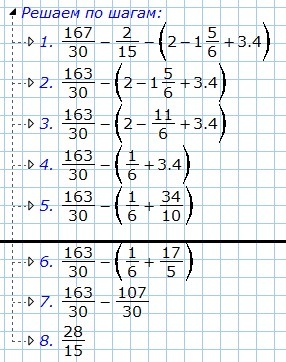 Решаем по шагам:
1. 167/30 − 2/15 − (2 − 1 5/6 + 3.4)
2. 163/30 − (2 − 1 5/6 + 3.4)
3. 163/30 − (2 − 11/6 + 3.4)
4. 163/30 − (1/6 + 3.4)
5. 163/30 − (1/6 + 34/10)
6. 163/30 − (1/6 + 17/5)
7. 163/30 − 107/30
8. 28/15